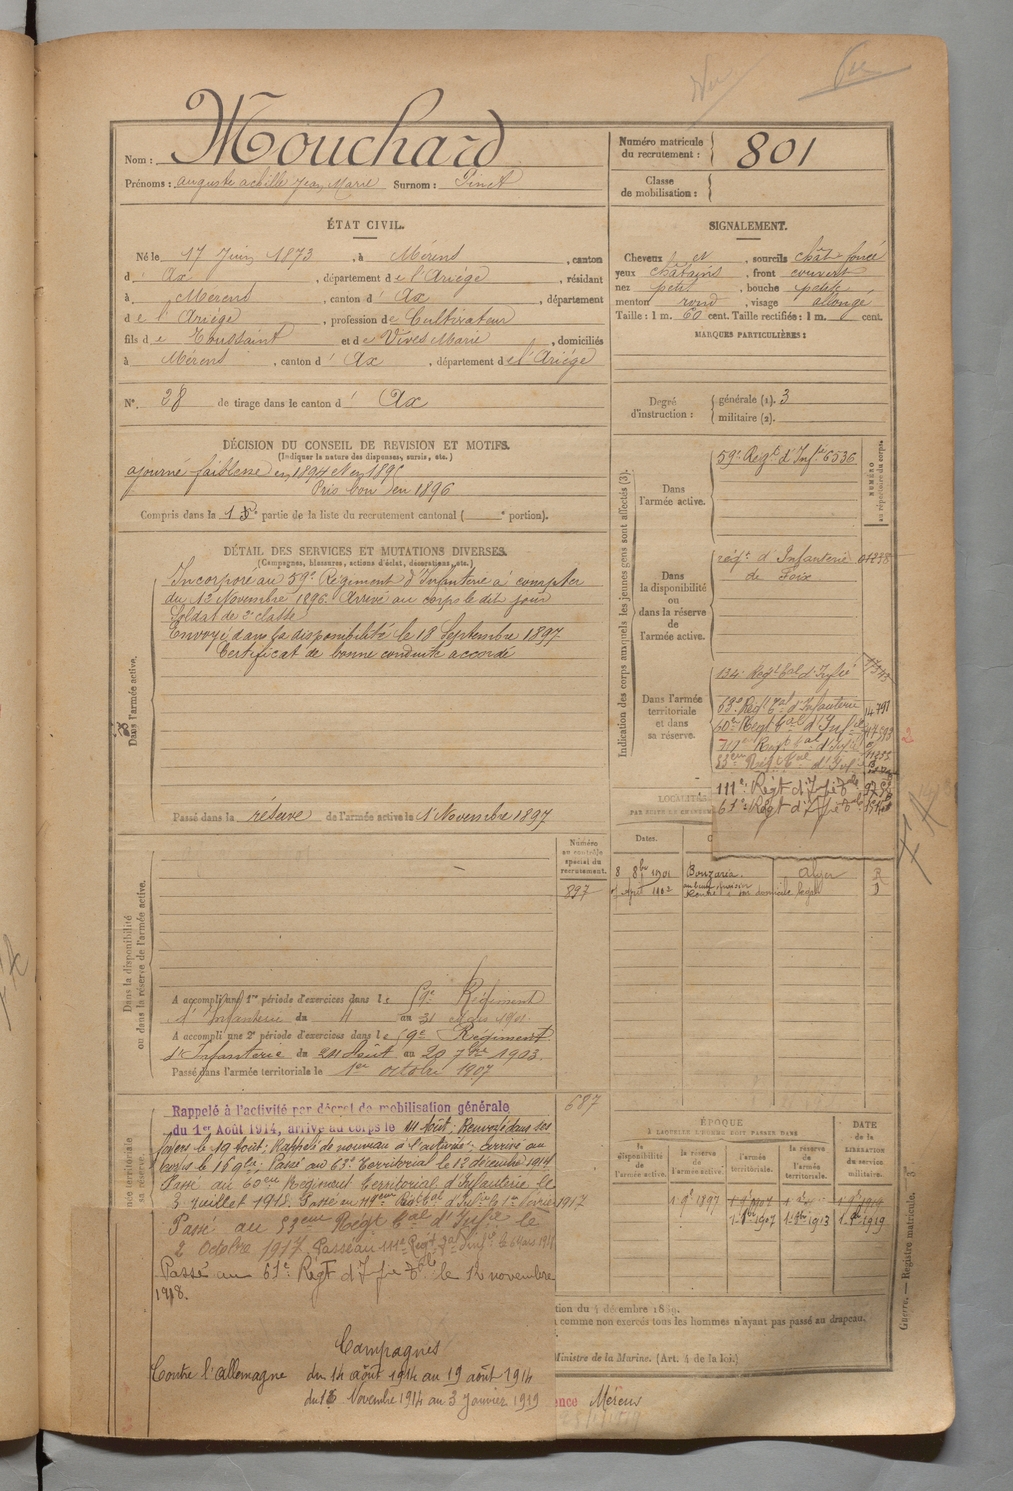 Nom : Mouchard
Prénoms : auguste achille Jean Marie Surnom : Pinet
Numéro matricule du recrutement : 801
Classe de mobilisation :
ÉTAT CIVIL.
Né le 17 Juin 1873, à Mérens, canton
d' Ax, département de l'Ariége, résidant
à Merens, canton d' Ax, département
de l' Ariége, profession de Cultivateur
fils de Toussaint et de Vives Marie, domiciliés
à Mérens, canton d' Ax, département de l'Ariége
N° 28 de tirage dans le canton d' Ax
SIGNALEMENT.
Cheveux et sourcils chât. foncé
yeux châtains, front couvert
nez petit, bouche petite
menton rond, visage allongé
Taille : 1 m. 60 cent. Taille rectifiée : 1 m. cent.
MARQUES PARTICULIÈRES :
Degré d'instruction : générale (1). 3
militaire (2).
DÉCISION DU CONSEIL DE REVISION ET MOTIFS.
(Indiquer la nature des dispenses, sursis, etc.)
ajourné faiblesse en 1894 et en 1895
Pris bon en 1896
Compris dans la partie de la liste du recrutement cantonal ( portion).
DÉTAIL DES SERVICES ET MUTATIONS DIVERSES.
(Campagnes, blessures, actions d'éclat, décorations, etc.)
Dans l'armée active.
Incorporé au 59e Régiment d'Infanterie à compter
du 13 Novembre 1896. Arrivé au corps le dit jour
Soldat de 2e classe
Envoyé dans la disponibilité le 18 Septembre 1897
Certificat de bonne conduite accordé
Passé dans la réserve de l'armée active le 1 Novembre 1897
Indication des corps auxquels les jeunes gens sont affectés (3).
NUMÉRO au répertoire du corps.
Dans l'armée active.
59e Régt d'Infie 6536
Dans la disponibilité ou dans la réserve de l'armée active.
régt d'Infanterie
de Foix
Dans l'armée territoriale et dans sa réserve.
134e Regt tal d'Infie
63e Regt tal d'Infanterie
60e Regt tal d'Infie
83eme Regt tal d'Infie
111e Régt d'Ifie tale
61e Régt d'Ifie tale
LOCALITÉS
Dates.
8 8bre 1901 Bouzaréa. Alger R
Avril 1902
Dans la disponibilité ou dans la réserve de l'armée active.
Numéro au contrôle spécial du recrutement.
897
A accompli une 1re période d'exercices dans le Régiment
d'Infanterie du 4 au 31 Mars 1901
A accompli une 2e période d'exercices dans le Régiment
d'Infanterie du 24 Août au 20 7bre 1903.
Passé dans l'armée territoriale le 1er octobre 1907
687
Rappelé à l'activité par décret de mobilisation générale
du 1er Août 1914, arrivé au corps le 14 Août; Renvoyé dans ses
foyers le 19 Août; Rappelé de nouveau à l'activité; arrivé au
corps le Passé au 63e Territorial le 12 décembre 1914
Passé au 60eme Régiment Territorial d'Infanterie le
3 Juillet Passé au Regt tal d'Infie le 1er Février 1917
Passé au 83eme Régt tal d'Infie le
2 Octobre 1917. Passé au 111e Regt tal d'Infie le 6 Mars 1918
Passé au 61e Régt d'Ifie tale le 12 novembre
1918.
Campagnes
Contre l'allemagne du 14 août 1914 au 19 août 1914
du Novembre 1914 au 3 Janvier 1919
ÉPOQUE
À LAQUELLE L'HOMME DOIT PASSER DANS
la disponibilité de l'armée active.
la réserve de l'armée active.
l'armée territoriale.
la réserve de l'armée territoriale.
DATE de la LIBÉRATION du service militaire.
1 9e 1897
1.8bre 1907 1.8bre 1913 1.8e 1919
tion du 4 décembre 1889.
comme non exercés tous les hommes n'ayant pas passé au drapeau.
Ministre de la Marine. (Art. 4 de la loi.)
ence Mérens
Guerre. — Registre matricule.